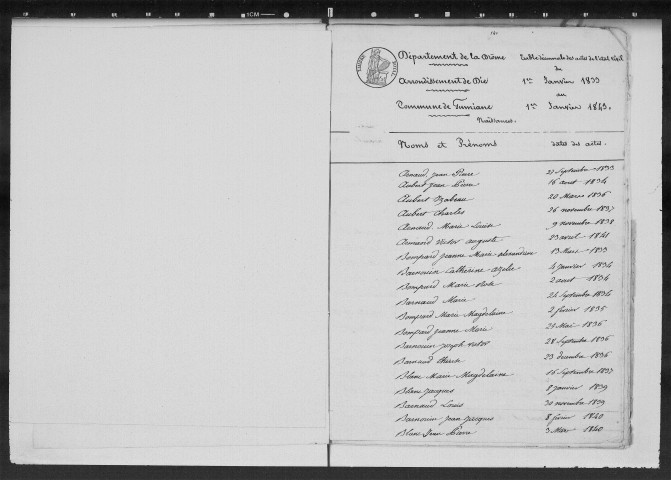 Département de la Drôme
Arrondissement de Die
Commune de Jumiane
Table décennale des actes de l'état civil
du
1er Janvier 1833
au
1er Janvier 1843.
Naissances.
Noms et Prénoms
dates des actes.
Arnaud Jean Pierre 21 Septembre 1833
Aubert Jean Pierre 16 aout 1834
Aubert Izabeau 20 Mars 1836
Aubert Charles 26 novembre 1837
Arnaud Marie Louise 9 novembre 1838
Armand Victor auguste 23 avril 1841
Bompard Jeanne Marie alexandrine 13 Mars 1833
Barnouin Catherine azelie 4 janvier 1834
Bompard Marie Rose 2 aout 1834
Barnaud Marie 24 Septembre 1834
Bompard Marie Magdelaine 2 février 1835
Bompard Jeanne Marie 25 Mai 1836
Barnouin joseph victor 28 Septembre 1836
Barnaud 23 décembre 1836
Blanc Marie Magdelaine 16 Septembre 1837
Blanc Jacques 8 janvier 1839
Barnaud Louis 30 novembre 1839
Barnouin Jean Jacques 8 février 1840
Blanc Jean Pierre 3 Mars 1840